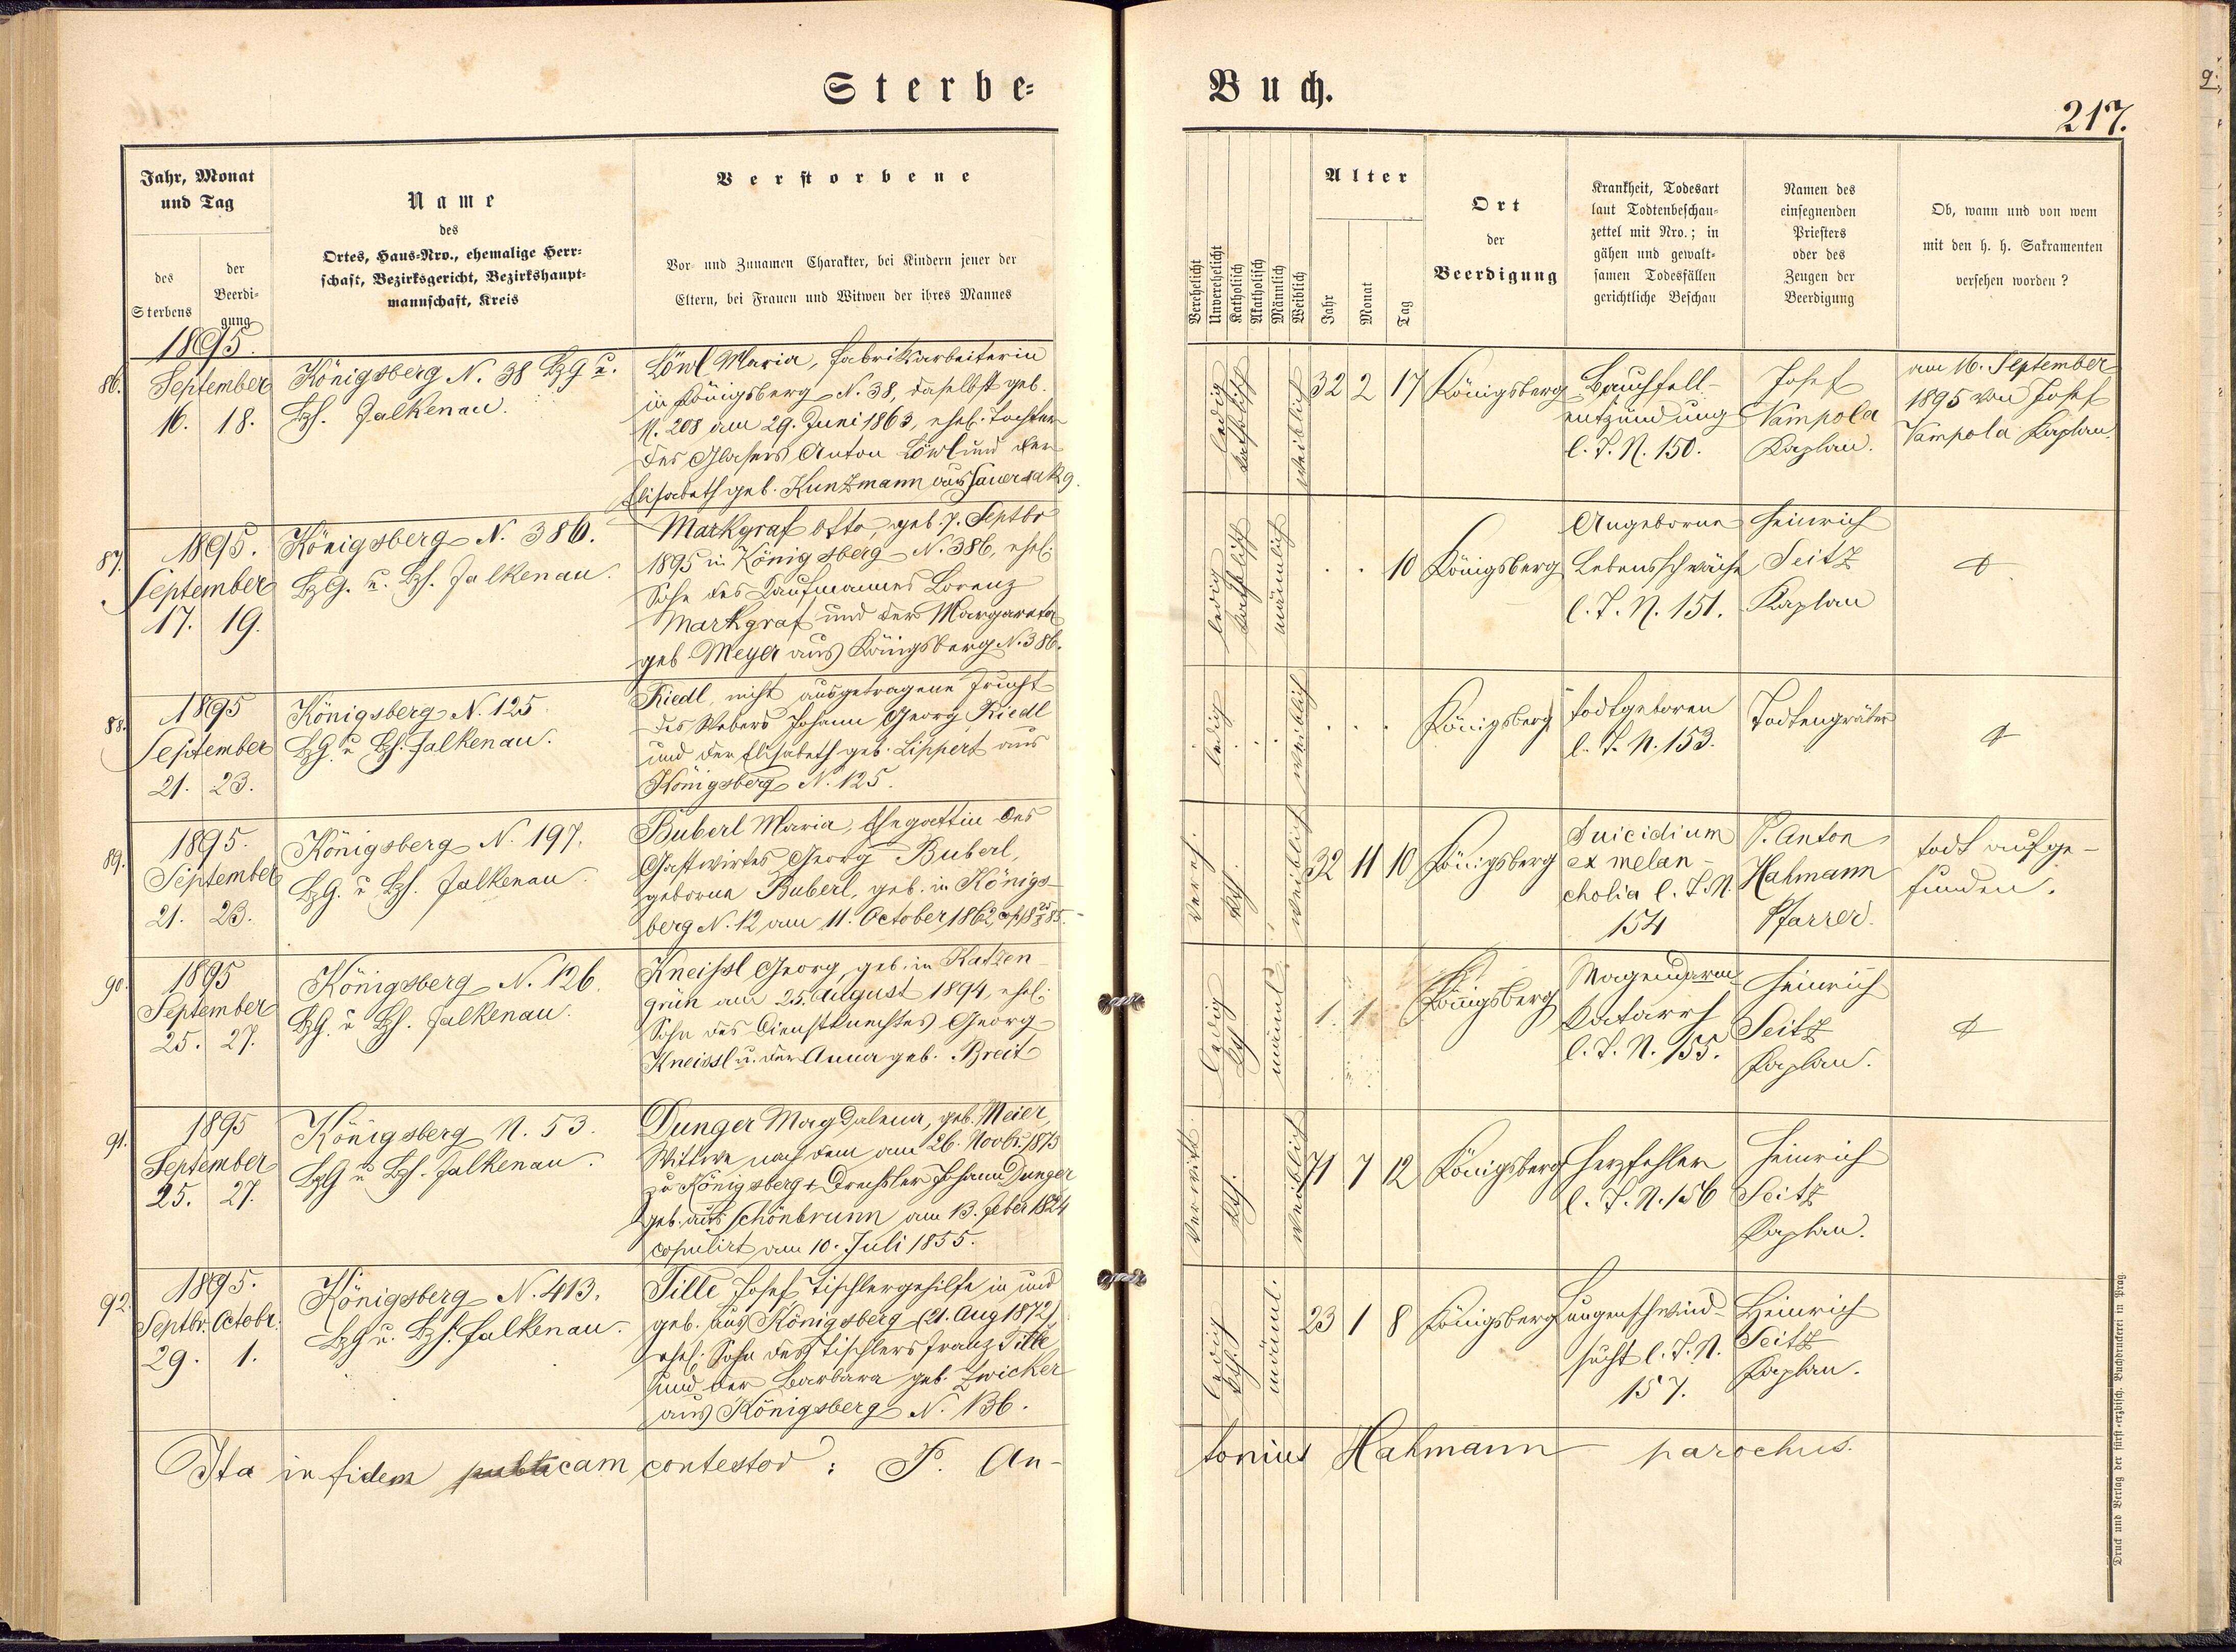 Sterbe-
Jahr, Monat
und Tag
des
Sterbens
der
Beerdi-
gung
Name
des
Ortes, Haus-Nro., ehemalige Herr-
schaft, Bezirksgericht, Bezirkshaupt-
mannschaft, Kreis
Verstorbene
Vor- und Zunamen Charakter, bei Kindern jener der
Eltern, bei Frauen und Witwen der ihres Mannes
1895.
86.
September
16. 18.
Königsberg N. 38 BzG u.
Bzh. Falkenau.
Löwl Maria, Fabriksarbeiterin
in Königsberg N. 38, daselbst geb.
N. 208 am 29. Juni 1863, ehel. Tochter
des Glasers Anton Löwl und der
Elisabeth geb. Kunzmann aus
87.
1895.
September
17. 19.
Königsberg N. 386.
BzG. u. Bzh. Falkenau.
Markgraf Otto, geb. 7. Septbr
1895 in Königsberg N. 386, ehel.
Sohn des Kaufmannes Lorenz
Markgraf und der Margareta
geb. Meyer aus Königsberg N. 386.
88.
1895
September
21. 23.
Königsberg N. 125.
BzG. u. Bzh. Falkenau.
Riedl, nicht ausgetragene Frucht
des Webers Johann Georg Riedl
und der Elisabeth geb. Lippert aus
Königsberg N. 125.
89.
1895.
September
21. 23.
Königsberg N. 197.
BzG. u. Bzh. Falkenau.
Buberl Maria, Ehegattin des
Gastwirtes Georg Buberl,
geborne Buberl, geb. in Königs-
berg N. 12 am 11. October 1862,
90.
1895
September
25. 27.
Königsberg N. 126.
BzG. u. Bzh. Falkenau.
Kneißl Georg, geb. in Katzen-
grün am 25. August 1894, ehel.
Sohn des Dienstknechtes Georg
Kneissl u. der Anna geb. Breit
91.
1895
September
25. 27.
Königsberg N. 53.
BzG u. Bzh. Falkenau.
Dunger Magdalena, geb. Meier,
Wittwe nach dem am 26. Novbr. 1875
zu Königsberg + Drechsler Johann Dunger
geb. aus Schönbrunn am 13. Feber 1824
copulirt am 10. Juli 1855.
92.
1895.
Septbr. Octobr.
29. 1.
Königsberg N. 413.
BzG u. Bzh. Falkenau.
Tille Josef Tischlergehilfe in und
geb. aus Königsberg (21. Aug 1872)
ehel. Sohn des Tischlers Franz Tille
und der Barbara geb. Zwicker
aus Königsberg N. 136.
Ita in fidem publicam contestor: P. An-
Buch.
217.
Verehelicht
Unverehelicht
Katholisch
Akatholisch
Männlich
Weiblich
Alter
Jahr
Monat
Tag
Ort
der
Beerdigung
Krankheit, Todesart
laut Todtenbeschau-
zettel mit Nro.; in
gähen und gewalt-
samen Todesfällen
gerichtliche Beschau
Namen des
einsegnenden
Priesters
oder des
Zeugen der
Beerdigung
Ob, wann und von wem
mit den h. h. Sakramenten
versehen worden?
ledig
katholisch
weiblich
32 2 17
Königsberg
Bauchfell-
entzündung
l. T. N. 150.
Josef
Vampola
Kaplan.
am 16. September
1895 von Josef
Vampola Kaplan.
ledig
katholisch
männlich
. . 10
Königsberg
Angeborne
Lebensschwäche
l. T. N. 151.
Heinrich
Seitz
Kaplan
ledig
weiblich
. . .
Königsberg
todtgeboren
l. T. N. 153.
Todtengräber
vereh.
kth.
weiblich
32 11 10
Königsberg
Suicidium
ex melan-
cholia l. T. N.
154
P. Anton
Hahmann
Pfarrer.
todt aufge-
funden.
ledig
kth
männl.
1 1
Königsberg
Magendarm-
katarrh
l. T. N. 155.
Heinrich
Seitz
Kaplan.
verwitt.
kth.
weiblich
71 7 12
Königsberg
Herzfehler
l. T. N. 156
Heinrich
Seitz
Kaplan.
ledig
kth.
männl.
23 1 8
Königsberg
Lungenschwind-
sucht l. T. N.
157.
Heinrich
Seitz
Kaplan.
tonius Hahmann parochus.
Druck und Verlag der fürst-erzbisch. Buchdruckerei in Prag.